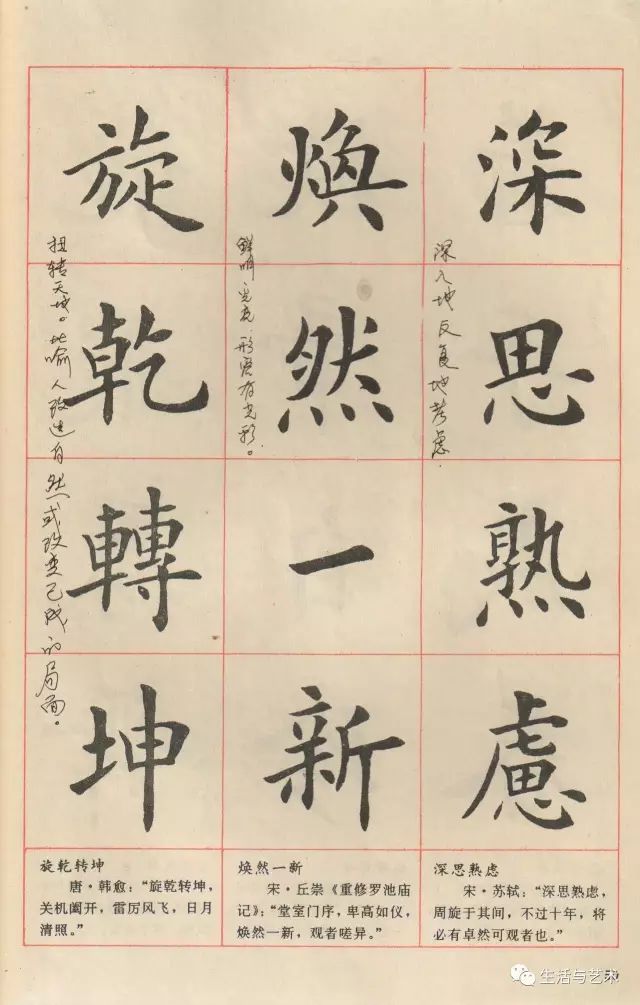 深思熟慮
深入地反复地考虑.
煥然一新
鲜明光亮.形容有光彩。
旋乾轉坤
扭转天地。比喻人改造自然或改变已成的局面。
深思熟虑
宋·苏轼：“深思熟虑，
周旋于其间，不过十年，将
必有卓然可观者也。”
焕然一新
宋·丘崇《重修罗池庙
记》：“堂室门序，卑高如仪，
焕然一新，观者嗟异。”
旋乾转坤
唐·韩愈：“旋乾转坤，
关机阖开，雷厉风飞，日月
清照。”
生活与艺术